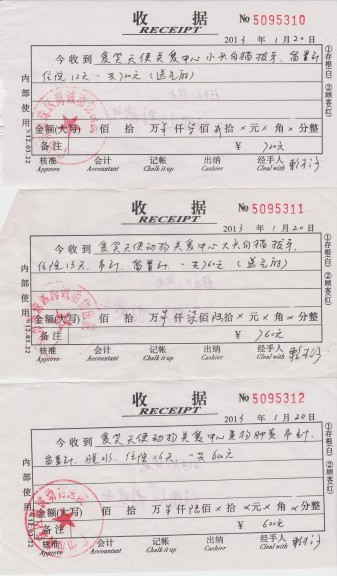 收 据 No 5095310
RECEIPT
2013 年 1月20日
今收到 爱笑天使关爱中心小头白猫拔牙、留置针
住院12天 一共720元
金额(大写) 佰 拾 万 仟 柒佰 贰拾 元 角 分整
备注 ¥ 720元
核准 会计 记帐 出纳 经手人
Approve Accountant Chalk it up Cashier Cleal with
①存根(白) ②顾客(红)
内部使用
N12.03.22
收 据 No 5095311
RECEIPT
2013 年 1月20日
今收到 爱笑天使动物关爱中心大头白猫拔牙
住院13天、吊针、留置针 一共760元
金额(大写) 佰 拾 万 仟 柒佰 陆拾 元 角 分整
备注 ¥ 760元
核准 会计 记帐 出纳 经手人
Approve Accountant Chalk it up Cashier Cleal with
①存根(白) ②顾客(红)
内部使用
N12.03.22
收 据 No 5095312
RECEIPT
2013 年 1月20日
今收到 爱笑天使动物关爱中心 吊针、
留置针、住院16天、一共600元
金额(大写) 佰 拾 万 仟 陆佰 拾 元 角 分整
备注 ¥ 600元
核准 会计 记帐 出纳 经手人
Approve Accountant Chalk it up Cashier Cleal with
①存根(白) ②顾客(红)
内部使用
N12.03.22